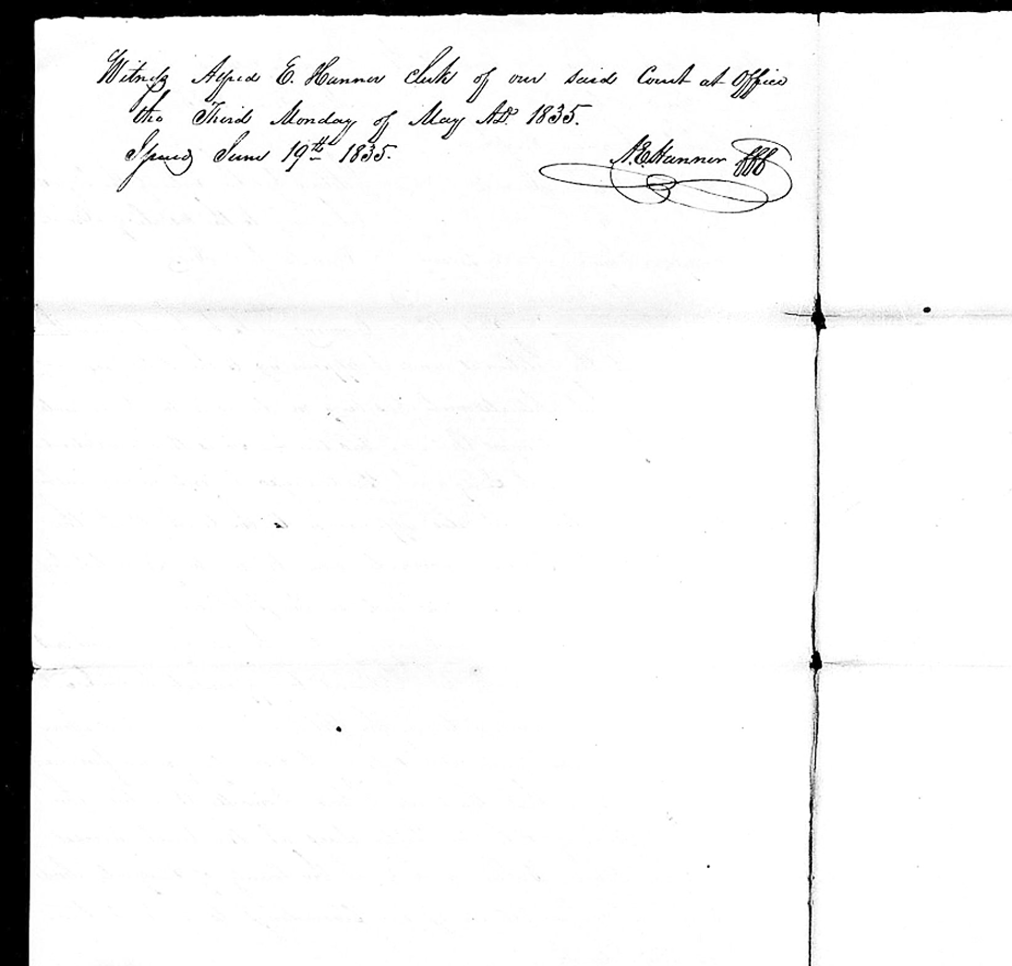 Witness Alfred E. Hanner Clerk of our said Court at Office
the Third Monday of May A.D. 1835.
Issued June 19th 1835.
A.E. Hanner